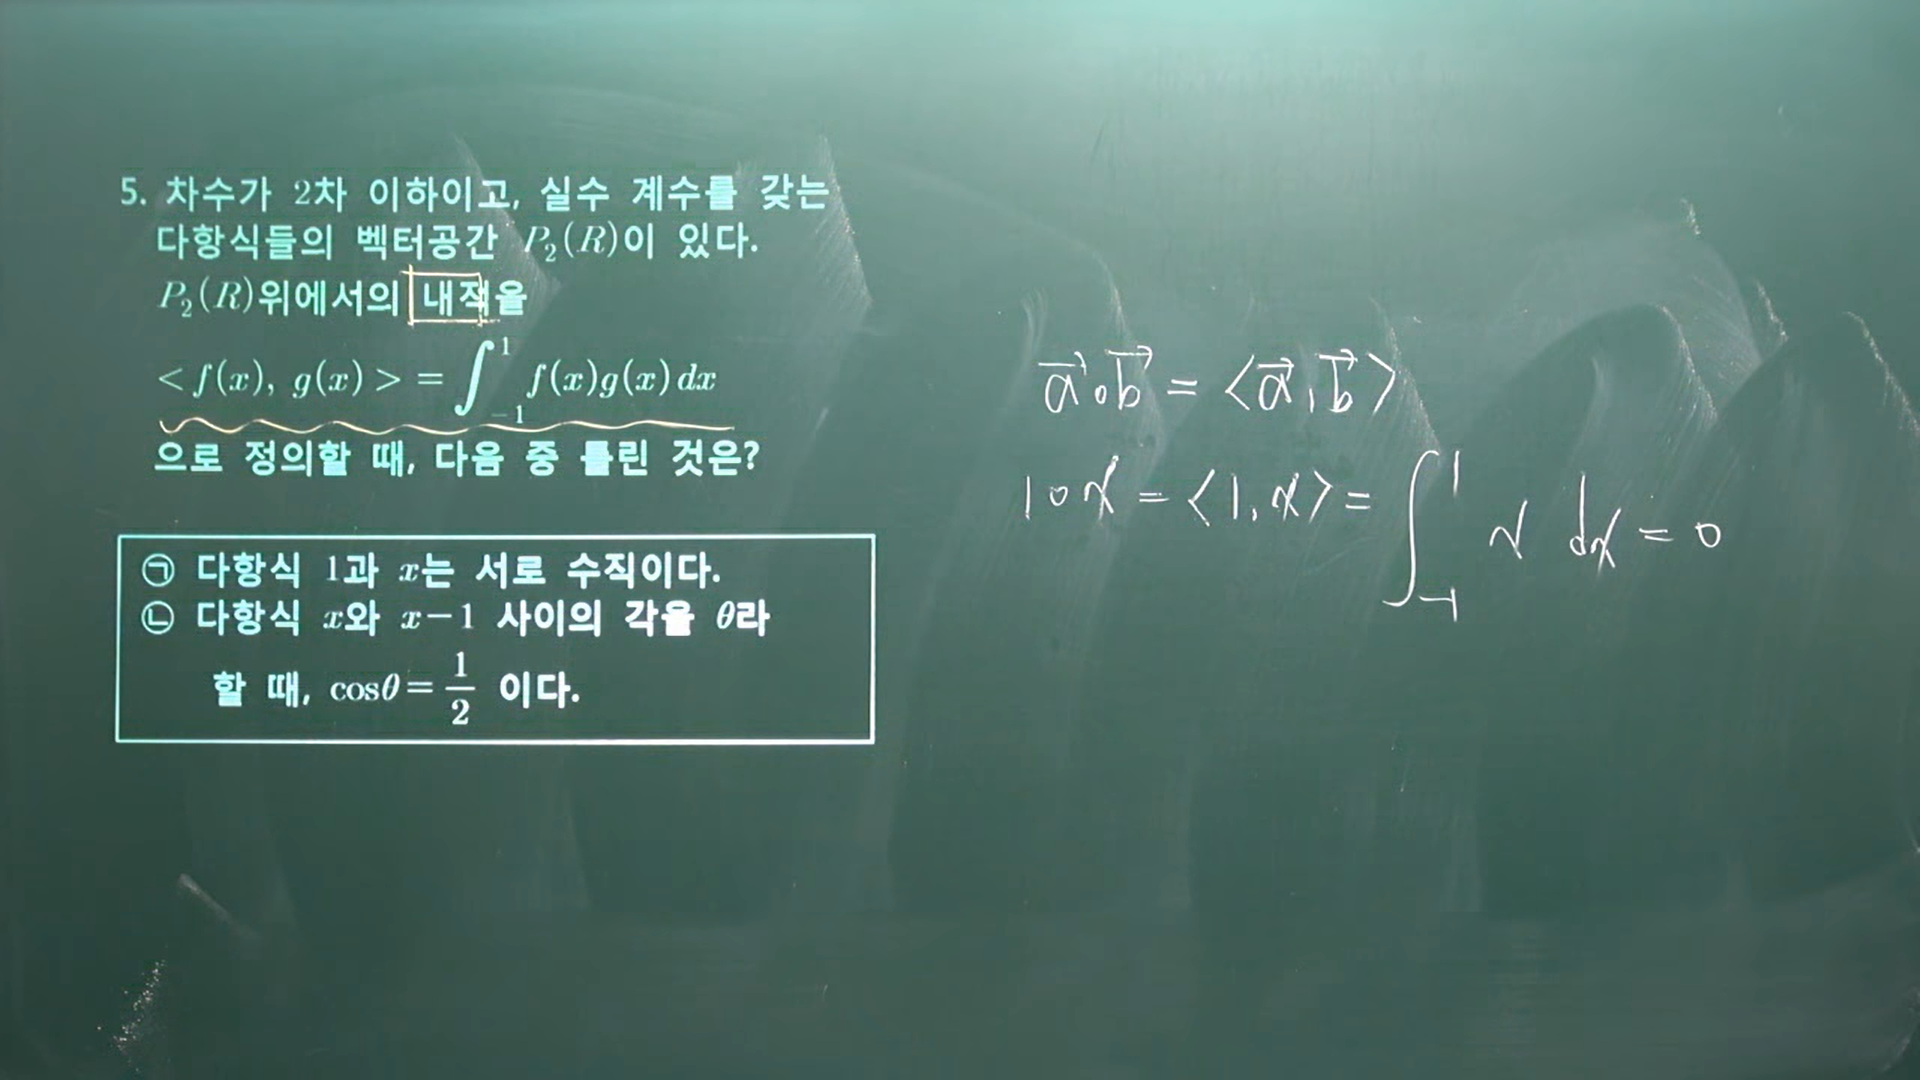 5. 차수가 2차 이하이고, 실수 계수를 갖는
다항식들의 벡터공간 P₂(R)이 있다.
P₂(R)위에서의 내적을
< f(x), g(x) > = ∫₋₁¹ f(x)g(x) dx
으로 정의할 때, 다음 중 틀린 것은?
㉠ 다항식 1과 x는 서로 수직이다.
㉡ 다항식 x와 x−1 사이의 각을 θ라
할 때, cosθ = 1/2 이다.
a⃗∘b⃗ = <a⃗, b⃗>
1∘x = <1, x> = ∫₋₁¹ x dx = 0